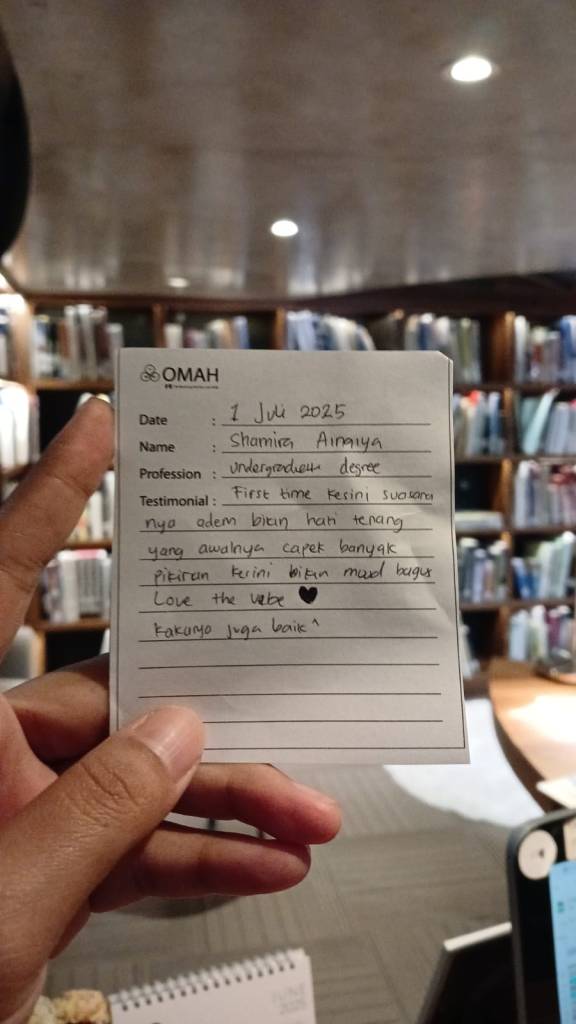 OMAH
Date : 1 Juli 2025
Name : Shamira Ainaiya
Profession : undergraduate degree
Testimonial : First time kesini suasana
nya adem bikin hati tenang
yang awalnya capek banyak
pikiran kesini bikin mood bagus
Love the vibe ♥
kakanya juga baik^
JUNE
2025